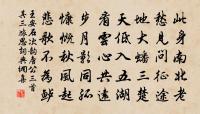 此身南北老
愁見問征途
地大蟠三楚
天低入五湖
看雲心共遠
步月影同孤
慷慨秋風起
悲歌不為鱸
王安石次韵唐公三首
其三旅思詞典網書